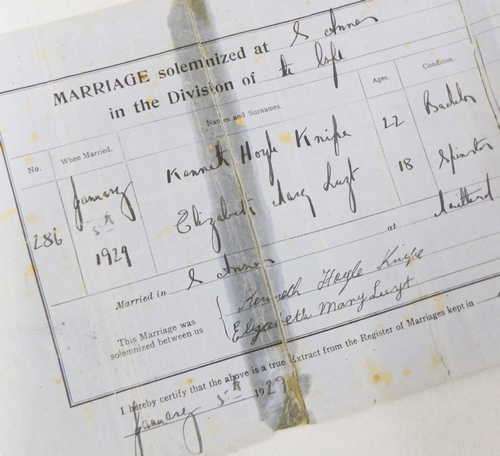 MARRIAGE solemnized at S Annes
in the Division of the Cape
No. When Married. Names and Surnames. Ages. Condition.
286 January 5th 1929
Kenneth Hoyle Knipe 22 Bachelor
Elizabeth Mary Luyt 18 Spinster
Married in S Annes at Maitland
This Marriage was
solemnized between us
Kenneth Hoyle Knipe
Elizabeth Mary Luyt
I hereby certify that the above is a true Extract from the Register of Marriages kept in
January 5th 1929